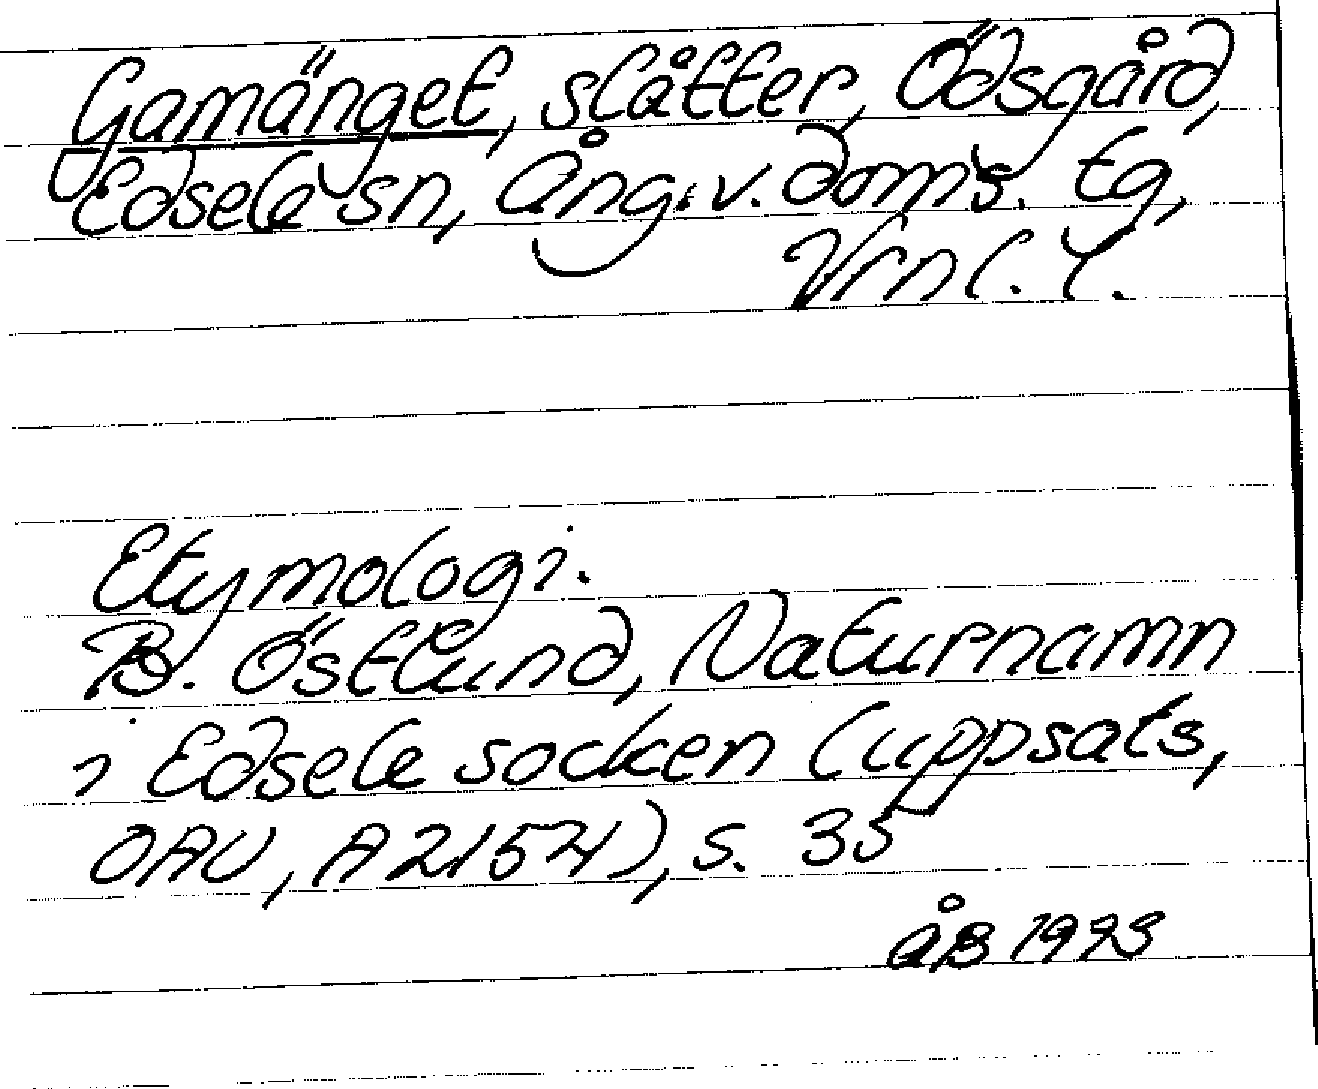 Gamänget, slåtter, Ödsgård,
Edsele sn, Ång. v. doms. tg,
Vrnl. l.
Etymologi.
B. Östlund, Naturnamn
i Edsele socken (uppsats,
OAU, A 2154), s. 35
åB 1993